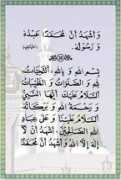 وَ اَشْهَدُ اَنَّ مُحَمَّدًا عَبْدُهُ
وَ رَسُوْلُهُ۔
بِسْمِ اللهِ وَ بِاللهِ اَلتَّحِيَّاتُ
لِلّٰهِ وَ الصَّلَوَاتُ وَ الطَّيِّبَاتُ
اَلسَّلَامُ عَلَيْكَ اَيُّهَا النَّبِيُّ
وَ رَحْمَةُ اللهِ وَ بَرَكَاتُهُ
اَلسَّلَامُ عَلَيْنَا وَ عَلٰى عِبَادِ
اللهِ الصَّالِحِيْنَ اَشْهَدُ اَنْ لَّا
اِلٰهَ اِلَّا اللهُ وَ اَشْهَدُ اَنَّ